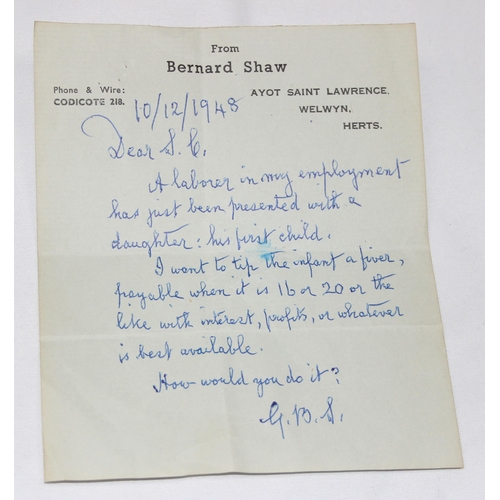 From
Bernard Shaw
Phone & Wire:
CODICOTE 218.
AYOT SAINT LAWRENCE,
WELWYN,
HERTS.
10/12/1948
Dear S. C.
A laborer in my employment
has just been presented with a
daughter: his first child.
I want to tip the infant a fiver,
payable when it is 16 or 20 or the
like with interest, profits, or whatever
is best available.
How would you do it?
G. B. S.